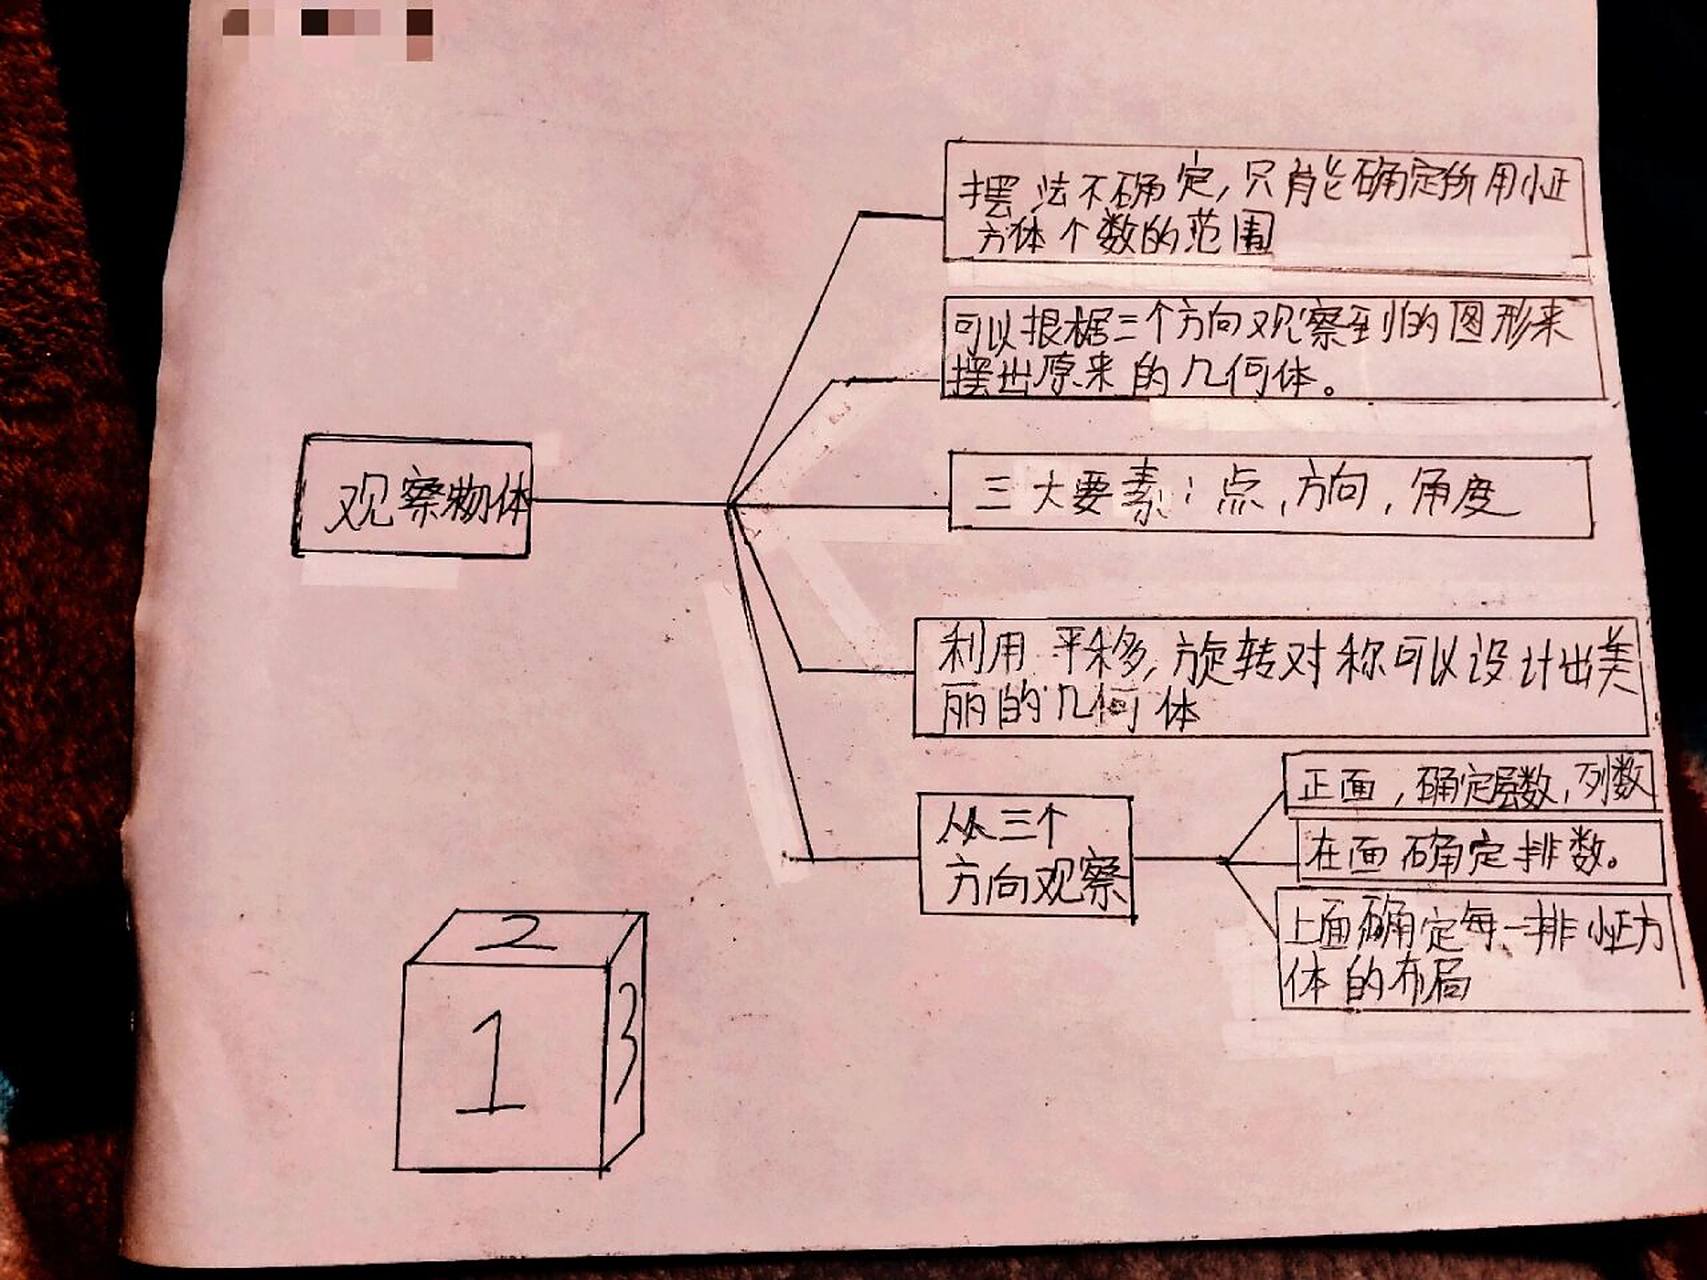 摆法不确定,只能确定所用小正
方体个数的范围
可以根据三个方向观察到的图形来
摆出原来的几何体。
观察物体
三大要素:点,方向,角度
利用平移,旋转对称可以设计出美
丽的几何体
正面,确定层数,列数
从三个
方向观察
在面确定排数。
上面确定每一排小正方
体的布局
2
1
3